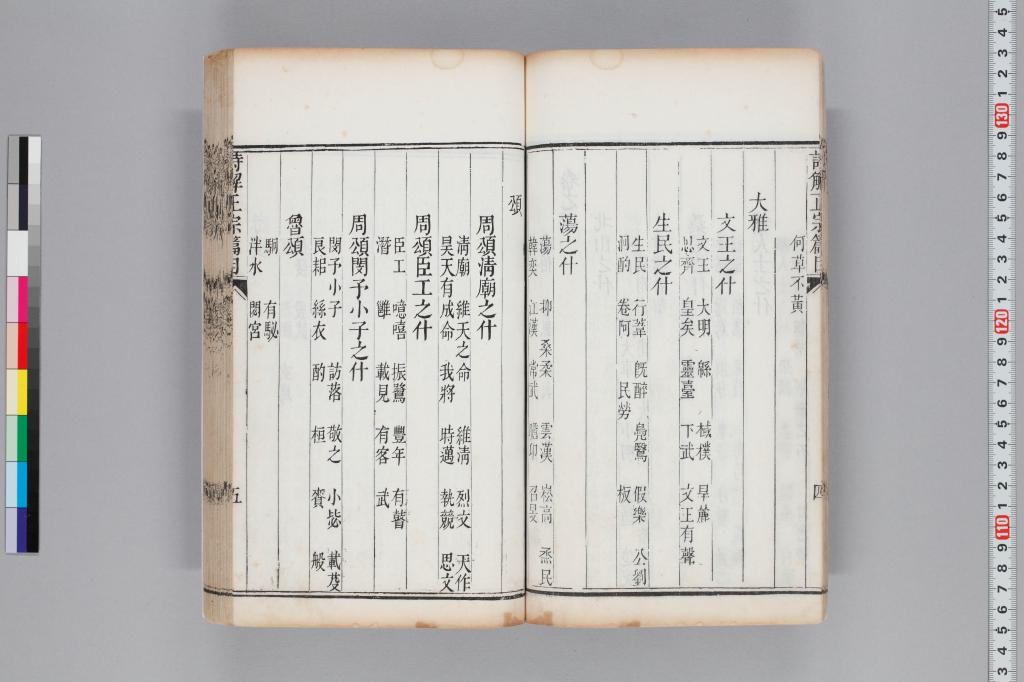 詩解正宗篇目 四
何草不黃
大雅
文王之什
文王 大明 緜 棫樸 旱麓
思齊 皇矣 靈臺 下武 文王有聲
生民之什
生民 行葦 旣醉 鳧鷖 假樂 公劉
泂酌 卷阿 民勞 板
蕩之什
蕩 抑 桑柔 雲漢 崧高 烝民
韓奕 江漢 常武 瞻卬 召旻
頌
周頌淸廟之什
淸廟 維天之命 維淸 烈文 天作
昊天有成命 我將 時邁 執競 思文
周頌臣工之什
臣工 噫嘻 振鷺 豐年 有瞽
潛 雝 載見 有客 武
周頌閔予小子之什
閔予小子 訪落 敬之 小毖 載芟
良耜 絲衣 酌 桓 賚 般
魯頌
駉 有駜
泮水 閟宮
詩解正宗篇目 五
5 4 3 2 1 130 9 8 7 6 5 4 3 2 1 120 9 8 7 6 5 4 3 2 1 110 9 8 7 6 5 4 3